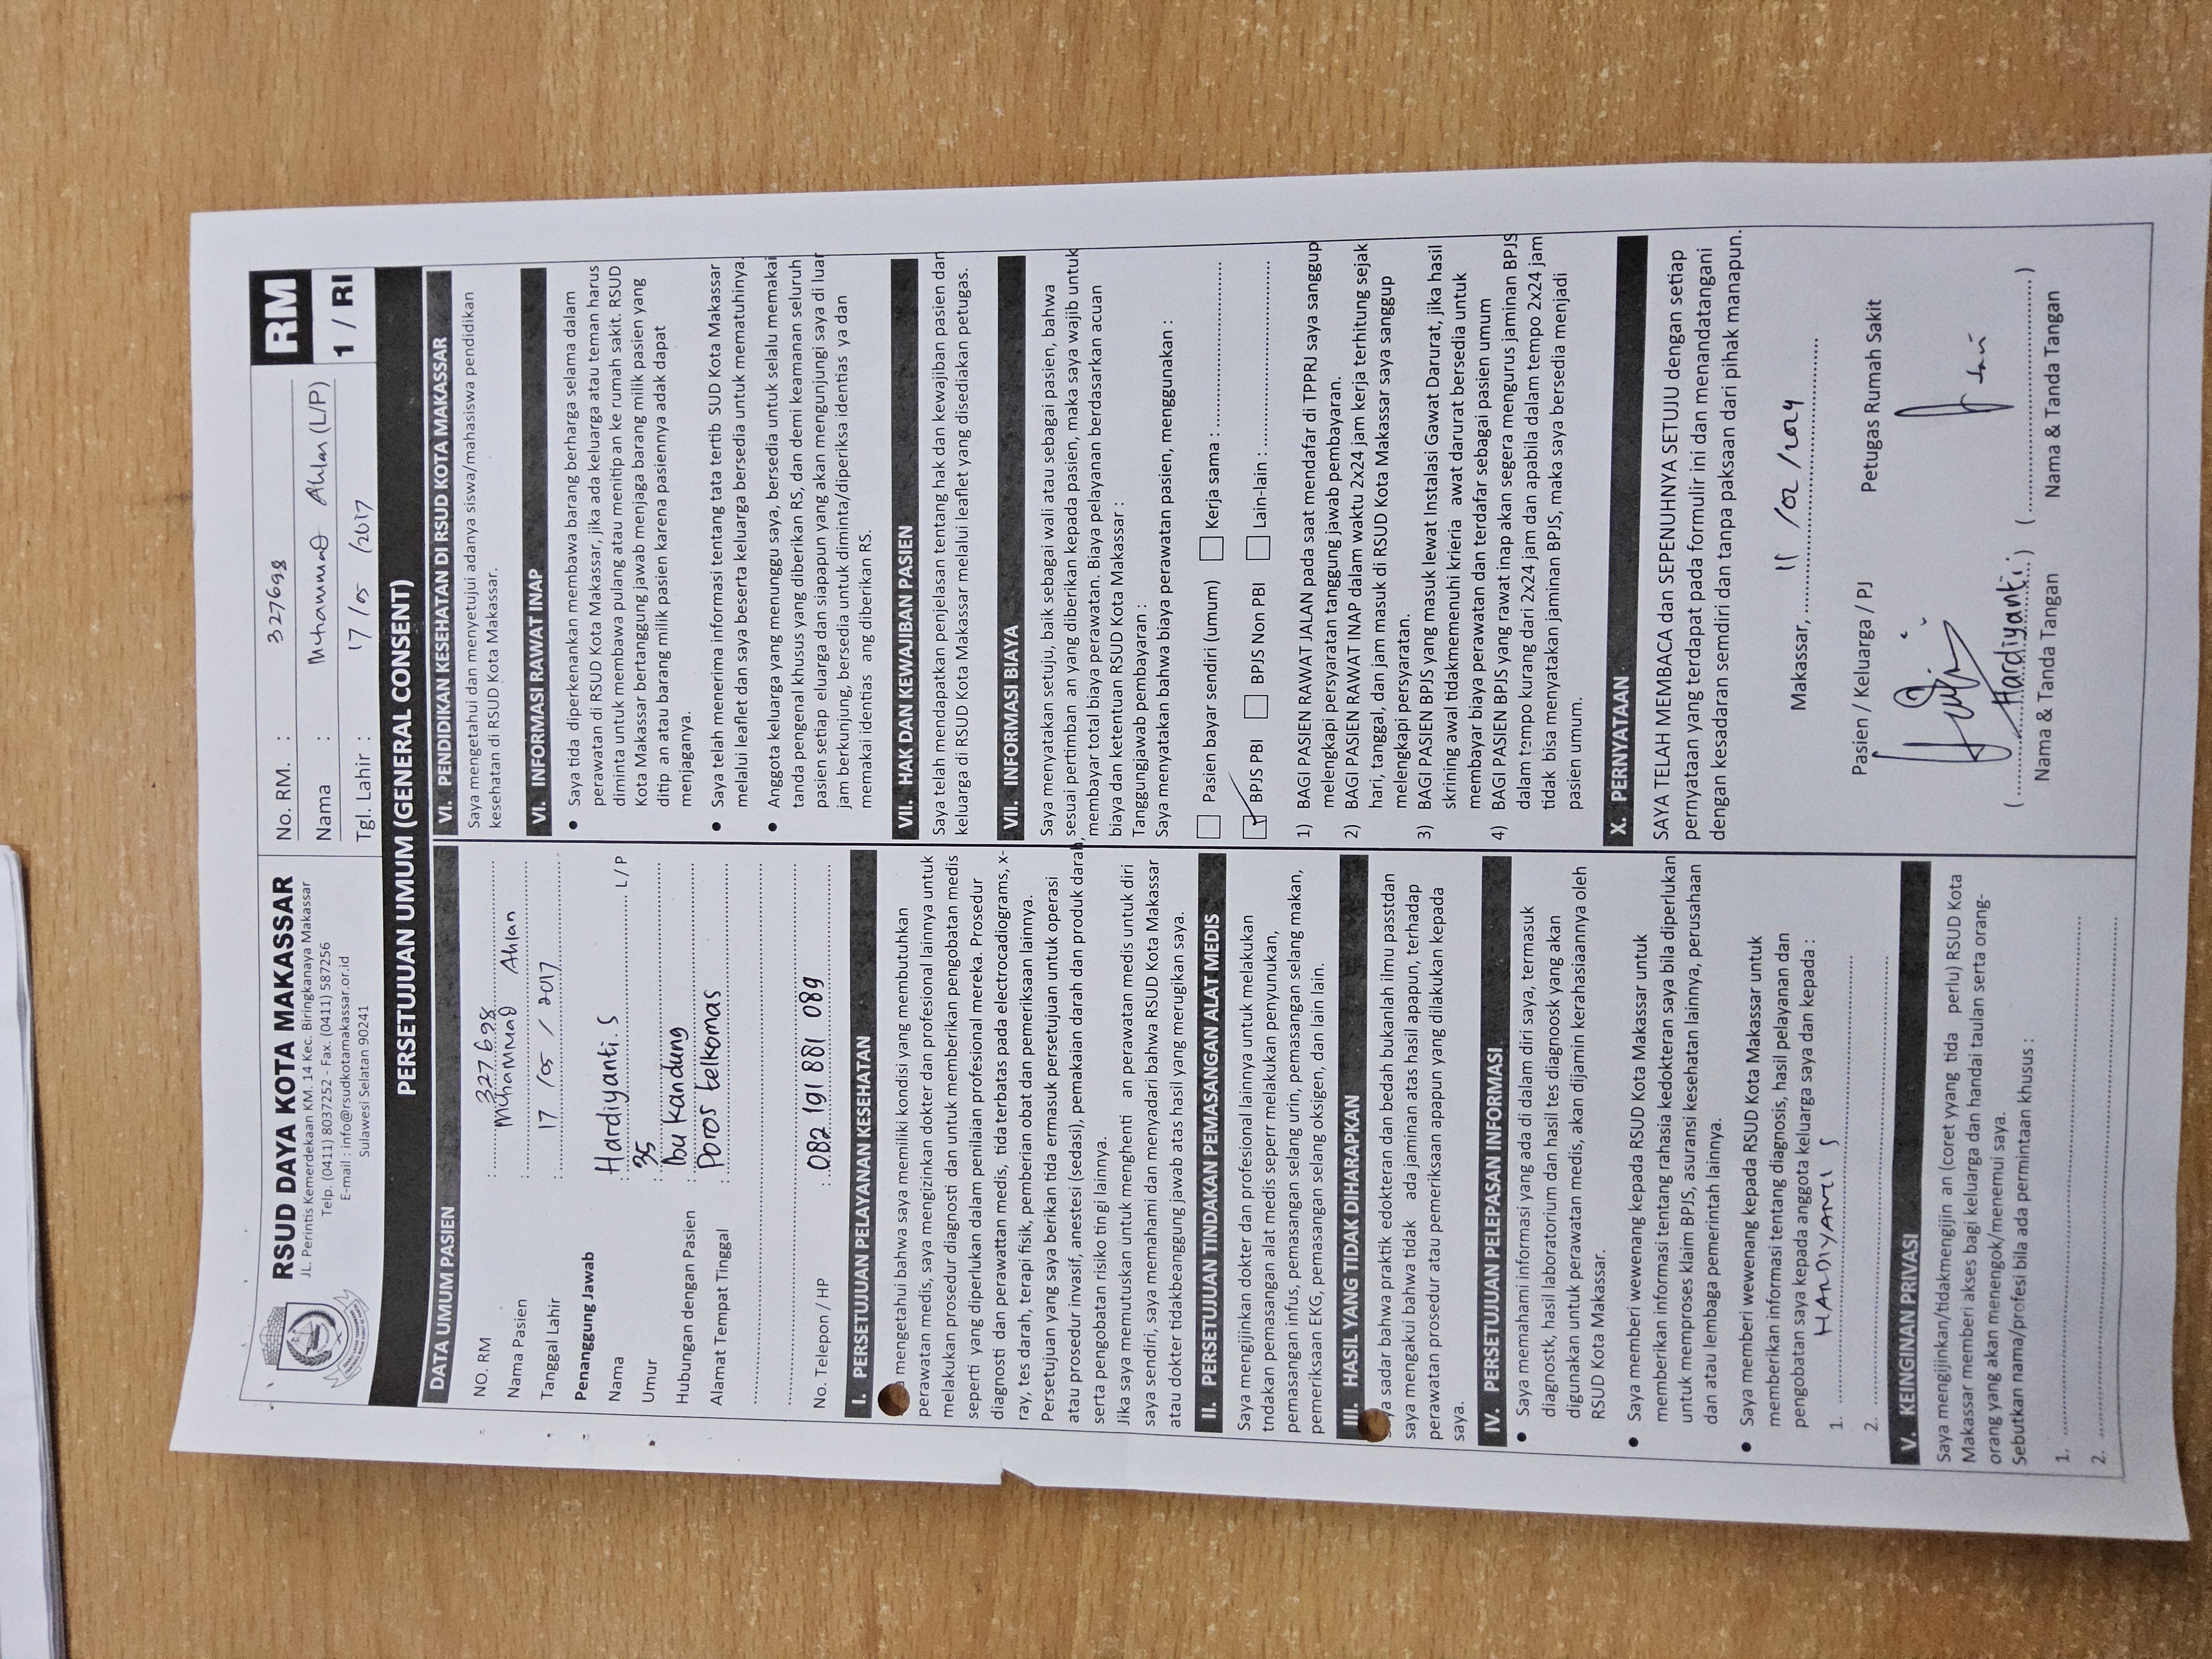 RSUD DAYA KOTA MAKASSAR
JL. Perintis Kemerdekaan KM. 14 Kec. Biringkanaya Makassar
Telp. (0411) 8037252 - Fax. (0411) 587256
E-mail : info@rsudkotamakassar.or.id
Sulawesi Selatan 90241
No. RM. : 327698
Nama : Muhammad Ahlan (L/P)
Tgl. Lahir : 17 / 05 / 2017
RM
1 / RI
PERSETUJUAN UMUM (GENERAL CONSENT)
DATA UMUM PASIEN
NO. RM : 327698
Nama Pasien : Muhammad Ahlan
Tanggal Lahir : 17 / 05 / 2017
Penanggung Jawab
Nama : Hardiyanti. S L / P
Umur : 35
Hubungan dengan Pasien : Ibu kandung
Alamat Tempat Tinggal : Poros telkomas
No. Telepon / HP : 082 191 881 089
I. PERSETUJUAN PELAYANAN KESEHATAN
mengetahui bahwa saya memiliki kondisi yang membutuhkan
perawatan medis, saya mengizinkan dokter dan profesional lainnya untuk
melakukan prosedur diagnosti dan untuk memberikan pengobatan medis
seperti yang diperlukan dalam penilaian profesional mereka. Prosedur
diagnosti dan perawattan medis, tida terbatas pada electrocadiograms, x-
ray, tes darah, terapi fisik, pemberian obat dan pemeriksaan lainnya.
Persetujuan yang saya berikan tida ermasuk persetujuan untuk operasi
atau prosedur invasif, anestesi (sedasi), pemakaian darah dan produk darah,
serta pengobatan risiko tingi lainnya.
Jika saya memutuskan untuk menghenti an perawatan medis untuk diri
saya sendiri, saya memahami dan menyadari bahwa RSUD Kota Makassar
atau dokter tidakbeanggung jawab atas hasil yang merugikan saya.
II. PERSETUJUAN TINDAKAN PEMASANGAN ALAT MEDIS
Saya mengijinkan dokter dan profesional lainnya untuk melakukan
tndakan pemasangan alat medis seperr melakukan penyunukan,
pemasangan infus, pemasangan selang urin, pemasangan selang makan,
pemeriksaan EKG, pemasangan selang oksigen, dan lain lain.
III. HASIL YANG TIDAK DIHARAPKAN
sadar bahwa praktik edokteran dan bedah bukanlah ilmu passtdan
saya mengakui bahwa tidak ada jaminan atas hasil apapun, terhadap
perawatan prosedur atau pemeriksaan apapun yang dilakukan kepada
saya.
IV. PERSETUJUAN PELEPASAN INFORMASI
• Saya memahami informasi yang ada di dalam diri saya, termasuk
diagnostk, hasil laboratorium dan hasil tes diagnoosk yang akan
digunakan untuk perawatan medis, akan dijamin kerahasiaannya oleh
RSUD Kota Makassar.
• Saya memberi wewenang kepada RSUD Kota Makassar untuk
memberikan informasi tentang rahasia kedokteran saya bila diperlukan
untuk memproses klaim BPJS, asuransi kesehatan lainnya, perusahaan
dan atau lembaga pemerintah lainnya.
• Saya memberi wewenang kepada RSUD Kota Makassar untuk
memberikan informasi tentang diagnosis, hasil pelayanan dan
pengobatan saya kepada anggota keluarga saya dan kepada :
1. HARDIYANTI S
2.
V. KEINGINAN PRIVASI
Saya mengijinkan/tidakmengijin an (coret yyang tida perlu) RSUD Kota
Makassar memberi akses bagi keluarga dan handai taulan serta orang-
orang yang akan menengok/menemui saya.
Sebutkan nama/profesi bila ada permintaan khusus :
1.
2.
VI. PENDIDIKAN KESEHATAN DI RSUD KOTA MAKASSAR
Saya mengetahui dan menyetujui adanya siswa/mahasiswa pendidikan
kesehatan di RSUD Kota Makassar.
VI. INFORMASI RAWAT INAP
• Saya tida diperkenankan membawa barang berharga selama dalam
perawatan di RSUD Kota Makassar, jika ada keluarga atau teman harus
diminta untuk membawa pulang atau menitip an ke rumah sakit. RSUD
Kota Makassar bertanggung jawab menjaga barang milik pasien yang
ditip an atau barang milik pasien karena pasiennya adak dapat
menjaganya.
• Saya telah menerima informasi tentang tata tertib SUD Kota Makassar
melalui leaflet dan saya beserta keluarga bersedia untuk mematuhinya.
• Anggota keluarga yang menunggu saya, bersedia untuk selalu memakai
tanda pengenal khusus yang diberikan RS, dan demi keamanan seluruh
pasien setiap eluarga dan siapapun yang akan mengunjungi saya di luar
jam berkunjung, bersedia untuk diminta/diperiksa identias ya dan
memakai identias ang diberikan RS.
VII. HAK DAN KEWAJIBAN PASIEN
Saya telah mendapatkan penjelasan tentang hak dan kewajiban pasien dan
keluarga di RSUD Kota Makassar melalui leaflet yang disediakan petugas.
VII. INFORMASI BIAYA
Saya menyatakan setuju, baik sebagai wali atau sebagai pasien, bahwa
sesuai pertimban an yang diberikan kepada pasien, maka saya wajib untuk
membayar total biaya perawatan. Biaya pelayanan berdasarkan acuan
biaya dan ketentuan RSUD Kota Makassar :
Tanggungjawab pembayaran :
Saya menyatakan bahwa biaya perawatan pasien, menggunakan :
Pasien bayar sendiri (umum) Kerja sama :
BPJS PBI BPJS Non PBI Lain-lain :
1) BAGI PASIEN RAWAT JALAN pada saat mendafar di TPPRJ saya sanggup
melengkapi persyaratan tanggung jawab pembayaran.
2) BAGI PASIEN RAWAT INAP dalam waktu 2x24 jam kerja terhitung sejak
hari, tanggal, dan jam masuk di RSUD Kota Makassar saya sanggup
melengkapi persyaratan.
3) BAGI PASIEN BPJS yang masuk lewat Instalasi Gawat Darurat, jika hasil
skrining awal tidakmemenuhi krieria awat darurat bersedia untuk
membayar biaya perawatan dan terdafar sebagai pasien umum
4) BAGI PASIEN BPJS yang rawat inap akan segera mengurus jaminan BPJS
dalam tempo kurang dari 2x24 jam dan apabila dalam tempo 2x24 jam
tidak bisa menyatakan jaminan BPJS, maka saya bersedia menjadi
pasien umum.
X. PERNYATAAN
SAYA TELAH MEMBACA dan SEPENUHNYA SETUJU dengan setiap
pernyataan yang terdapat pada formulir ini dan menandatangani
dengan kesadaran semdiri dan tanpa paksaan dari pihak manapun.
Makassar, 11 / 02 / 2024
Pasien / Keluarga / PJ Petugas Rumah Sakit
( Hardiyanti ) ( )
Nama & Tanda Tangan Nama & Tanda Tangan